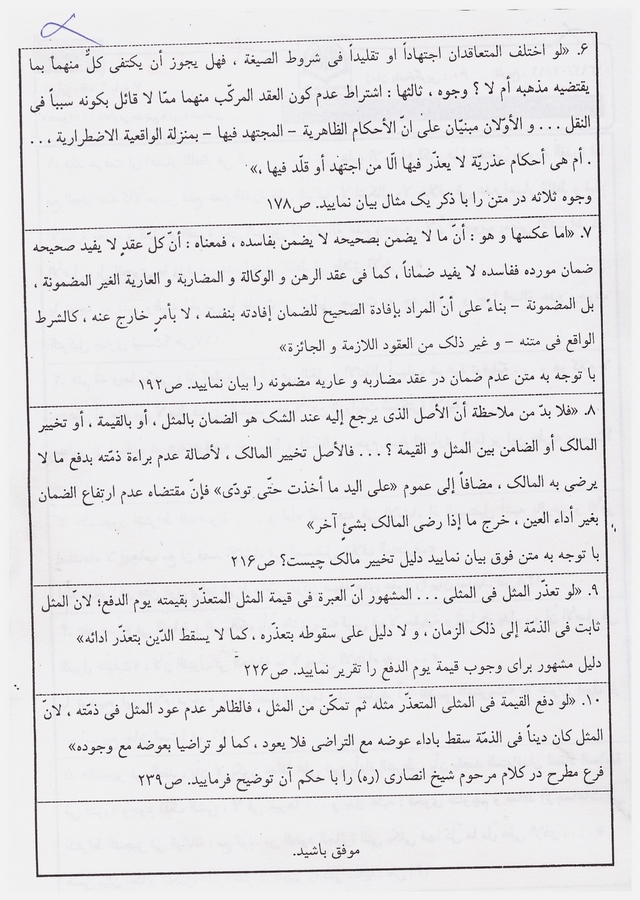 ۶. «لو اختلف المتعاقدان اجتهاداً او تقلیداً فی شروط الصیغة ، فهل یجوز أن یکتفی کلٌّ منهما بما
یقتضیه مذهبه أم لا ؟ وجوه ، ثالثها : اشتراط عدم کون العقد المرکّب منهما ممّا لا قائل بکونه سبباً فی
النقل . . . و الأوّلان مبنیّان علی انّ الأحکام الظاهریة – المجتهد فیها – بمنزلة الواقعیة الاضطراریة ، . .
. أم هی أحکام عذریّة لا یعذّر فیها الّا من اجتهد أو قلّد فیها ،»
وجوه ثلاثه در متن را با ذکر یک مثال بیان نمایید. ص۱۷۸
۷. «اما عکسها و هو : أنّ ما لا یضمن بصحیحه لا یضمن بفاسده ، فمعناه : أنّ کلّ عقدٍ لا یفید صحیحه
ضمان مورده ففاسده لا یفید ضماناً ، کما فی عقد الرهن و الوکالة و المضاربة و العاریة الغیر المضمونة ،
بل المضمونة – بناءً علی أنّ المراد بإفادة الصحیح للضمان إفادته بنفسه ، لا بأمرٍ خارج عنه ، کالشرط
الواقع فی متنه – و غیر ذلک من العقود اللازمة و الجائزة»
با توجه به متن عدم ضمان در عقد مضاربه و عاریه مضمونه را بیان نمایید. ص۱۹۲
۸. «فلا بدّ من ملاحظة أنّ الأصل الذی یرجع إلیه عند الشک هو الضمان بالمثل ، أو بالقیمة ، أو تخییر
المالک أو الضامن بین المثل و القیمة ؟ . . . فالأصل تخییر المالک ، لأصالة عدم براءة ذمّته بدفع ما لا
یرضی به المالک ، مضافاً إلی عموم «علی الید ما أخذت حتّی تودّی» فإنّ مقتضاه عدم ارتفاع الضمان
بغیر أداء العین ، خرج ما إذا رضی المالک بشئٍ آخر»
با توجه به متن فوق بیان نمایید دلیل تخییر مالک چیست؟ ص۲۱۶
۹. «لو تعذّر المثل فی المثلی . . . المشهور انّ العبرة فی قیمة المثل المتعذّر بقیمته یوم الدفع؛ لانّ المثل
ثابت فی الذمّة إلی ذلک الزمان ، و لا دلیل علی سقوطه بتعذّره ، کما لا یسقط الدّین بتعذّر ادائه»
دلیل مشهور برای وجوب قیمة یوم الدفع را تقریر نمایید. ص۲۲۶
۱۰. «لو دفع القیمة فی المثلی المتعذّر مثله ثم تمکّن من المثل ، فالظاهر عدم عود المثل فی ذمّته ، لانّ
المثل کان دیناً فی الذمّة سقط باداء عوضه مع التراضی فلا یعود ، کما لو تراضیا بعوضه مع وجوده»
فرع مطرح در کلام مرحوم شیخ انصاری (ره) را با حکم آن توضیح فرمایید. ص۲۳۹
موفق باشید.